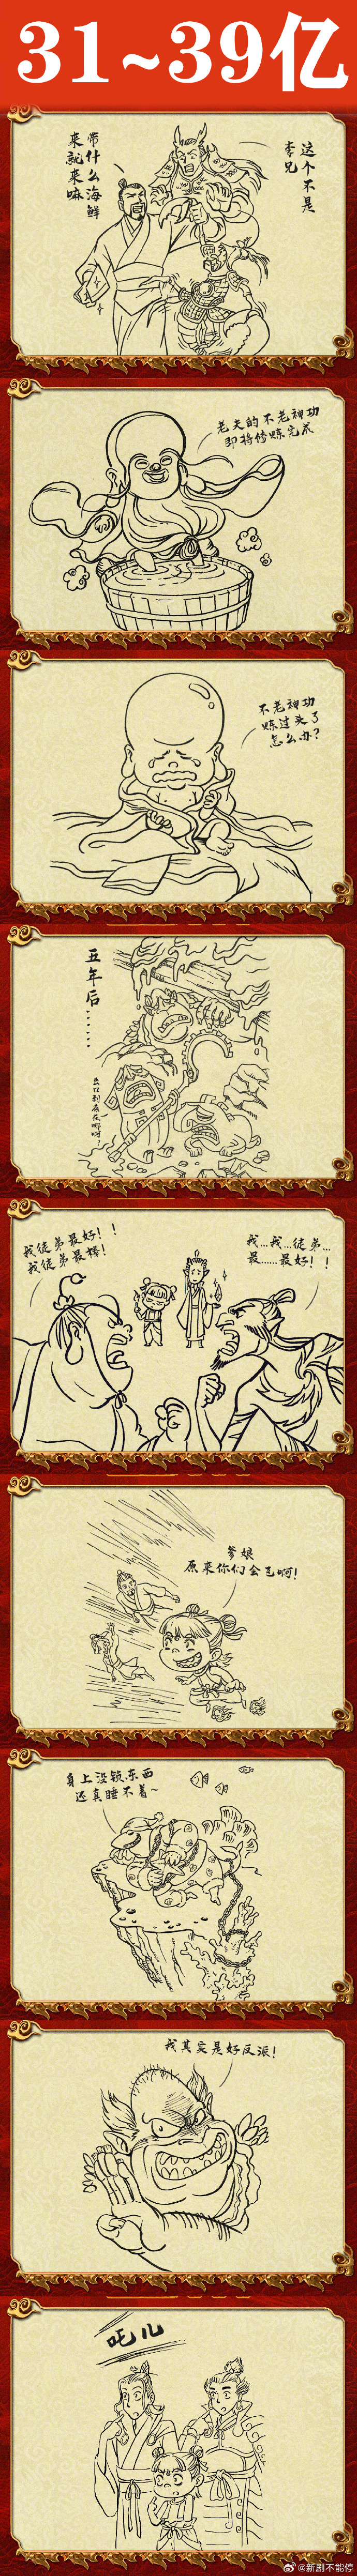 31~39亿
带什么海鲜
来就来嘛
这个不是
李兄
老夫的不老神功
即将修炼完成
不老神功
炼过头了
怎么办?
五年后......
出口到底在哪啊?
我徒弟最好!!
我徒弟最棒!
我...我...徒弟...
最......最好!!
爹娘
原来你们会飞啊!
身上没锁东西
还真睡不着~
我其实是好反派!
吒儿
@新剧不能停